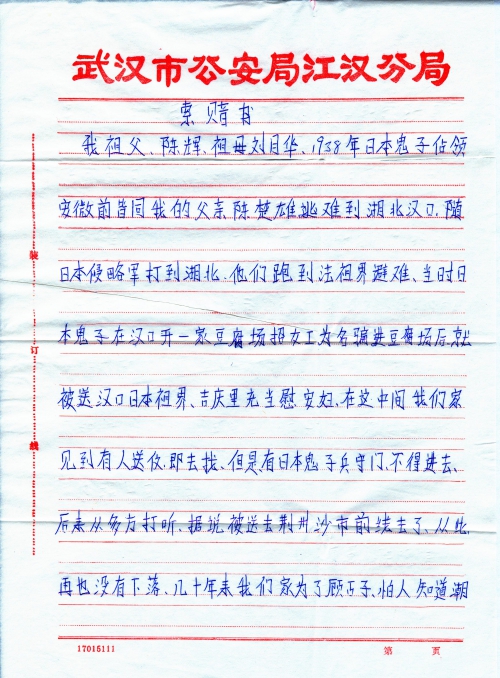 武汉市公安局江汉分局
索赔书
我祖父、陈辉、祖母刘月华、1938年日本鬼子占领
安微前皆同我的父亲陈楚雄逃难到湘北汉口,随
日本侵略军打到湘北.他们跑到法租界避难、当时日
本鬼子在汉口开一家豆腐场招女工为名骗进豆腐场后就
被送汉口日本租界、吉庆里充当慰安妇、在这中间我们家
见到有人送饭,即去找、但是有日本鬼子兵守门、不得进去、
后来从多方打听、据说被送去荆州沙市前线去了、从此
再也没有下落、几十年来我们家为了顾子、怕人知道潮
装
订
线
17015111
第 页